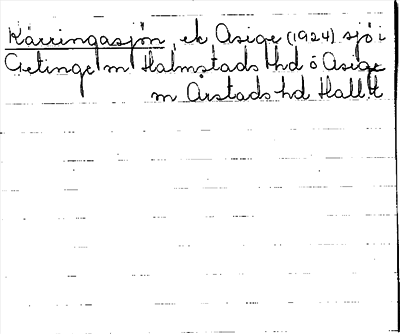 Kärringasjön, ek Asige (1924) sjö i
Getinge m Halmstads hd ö Asige
m Årstads hd Hall